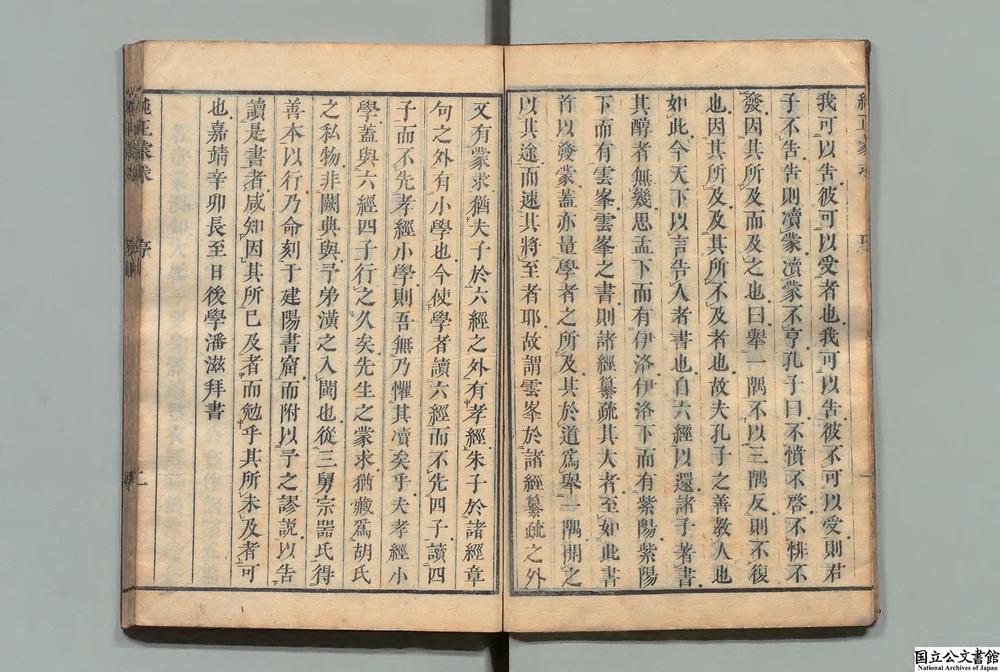 我可以告彼可以受者也我可以告彼不可以受則君
子不告告則凟蒙凟蒙不亨孔子曰不憤不啓不悱不
發因其所及而及之也曰舉一隅不以三隅反則不復
也因其所及及其所不及者也故夫孔子之善教人也
如此今天下以言告人者書也自六經以還諸子著書
其醇者無幾思孟下而有伊洛伊洛下而有紫陽紫陽
下而有雲峯雲峯之書則諸經纂疏其大者至如此書
首以發蒙蓋亦量學者之所及其於道爲舉一隅開之
以其途而速其將至者耶故謂雲峯於諸經纂疏之外
又有蒙求猶夫子於六經之外有孝經朱子於諸經章
句之外有小學也今使學者讀六經而不先四子讀四
子而不先孝經小學則吾無乃懼其凟矣乎夫孝經小
學蓋與六經四子行之久矣先生之蒙求猶藏爲胡氏
之私物非闕典與予弟潢之入閩也從三舅宗器氏得
善本以行乃命刻于建陽書窟而附以予之謬說以告
讀是書者咸知因其所已及者而勉乎其所未及者可
也嘉靖辛卯長至日後學潘滋拜書
純正蒙求
序
二
国立公文書館
National Archives of Japan